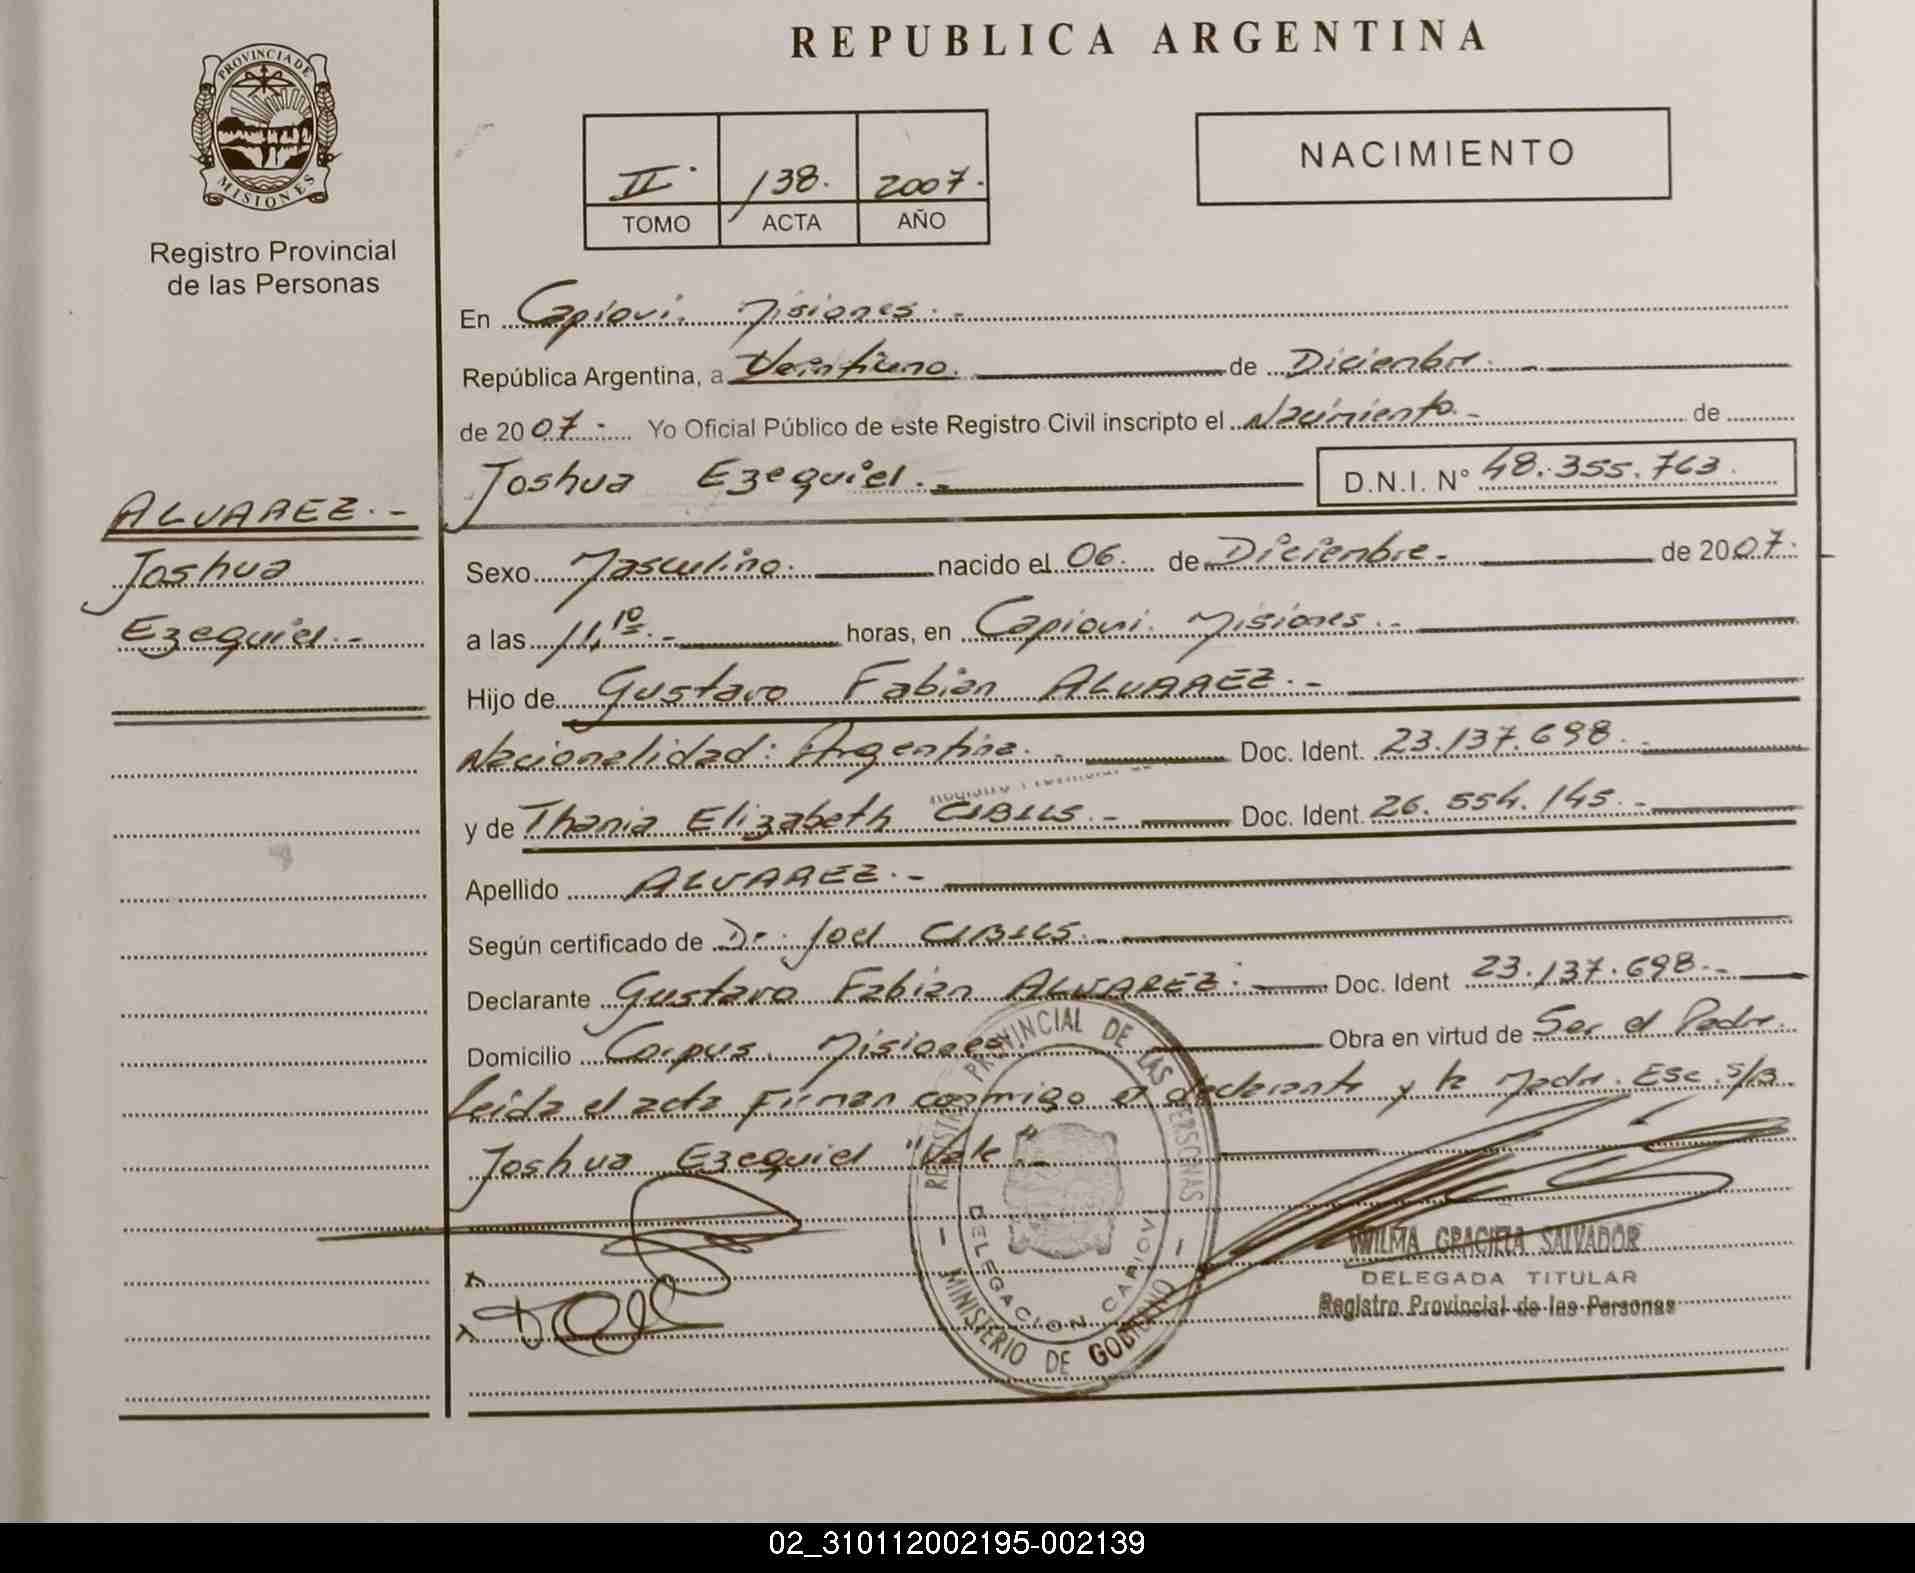 REPUBLICA ARGENTINA
PROVINCIA DE
MISIONES
Registro Provincial
de las Personas
II. 138. 2007.
TOMO ACTA AÑO
NACIMIENTO
En Capiovi. Misiones.-
República Argentina, a Veintiuno. de Diciembre.-
de 2007.- Yo Oficial Público de este Registro Civil inscripto el Nacimiento.- de
Joshua Ezequiel.- D.N.I. N° 48.355.763.
ALVAREZ.-
Joshua
Ezequiel.-
Sexo Masculino. nacido el 06. de Diciembre.- de 2007.-
a las 11,10.- horas, en Capiovi. Misiones.-
Hijo de Gustavo Fabian ALVAREZ.-
Nacionalidad: Argentina.- Doc. Ident. 23.137.698.-
y de Thania Elizabeth CIBILS.- Doc. Ident. 26.554.145.-
Apellido ALVAREZ.-
Según certificado de Dr. Joel CIBILS.-
Declarante Gustavo Fabian ALVAREZ.- Doc. Ident 23.137.698.-
Domicilio Corpus. Misiones Obra en virtud de Ser el Padre.
Leida el acta Firman conmigo el declarante y la Madre. Esc. S/B
Joshua Ezequiel "Vale".-
REGISTRO PROVINCIAL DE LAS PERSONAS
DELEGACION CAPIOVI
MINISTERIO DE GOBIERNO
WILMA GRACIELA SALVADOR
DELEGADA TITULAR
Registro Provincial de las Personas
02_310112002195-002139